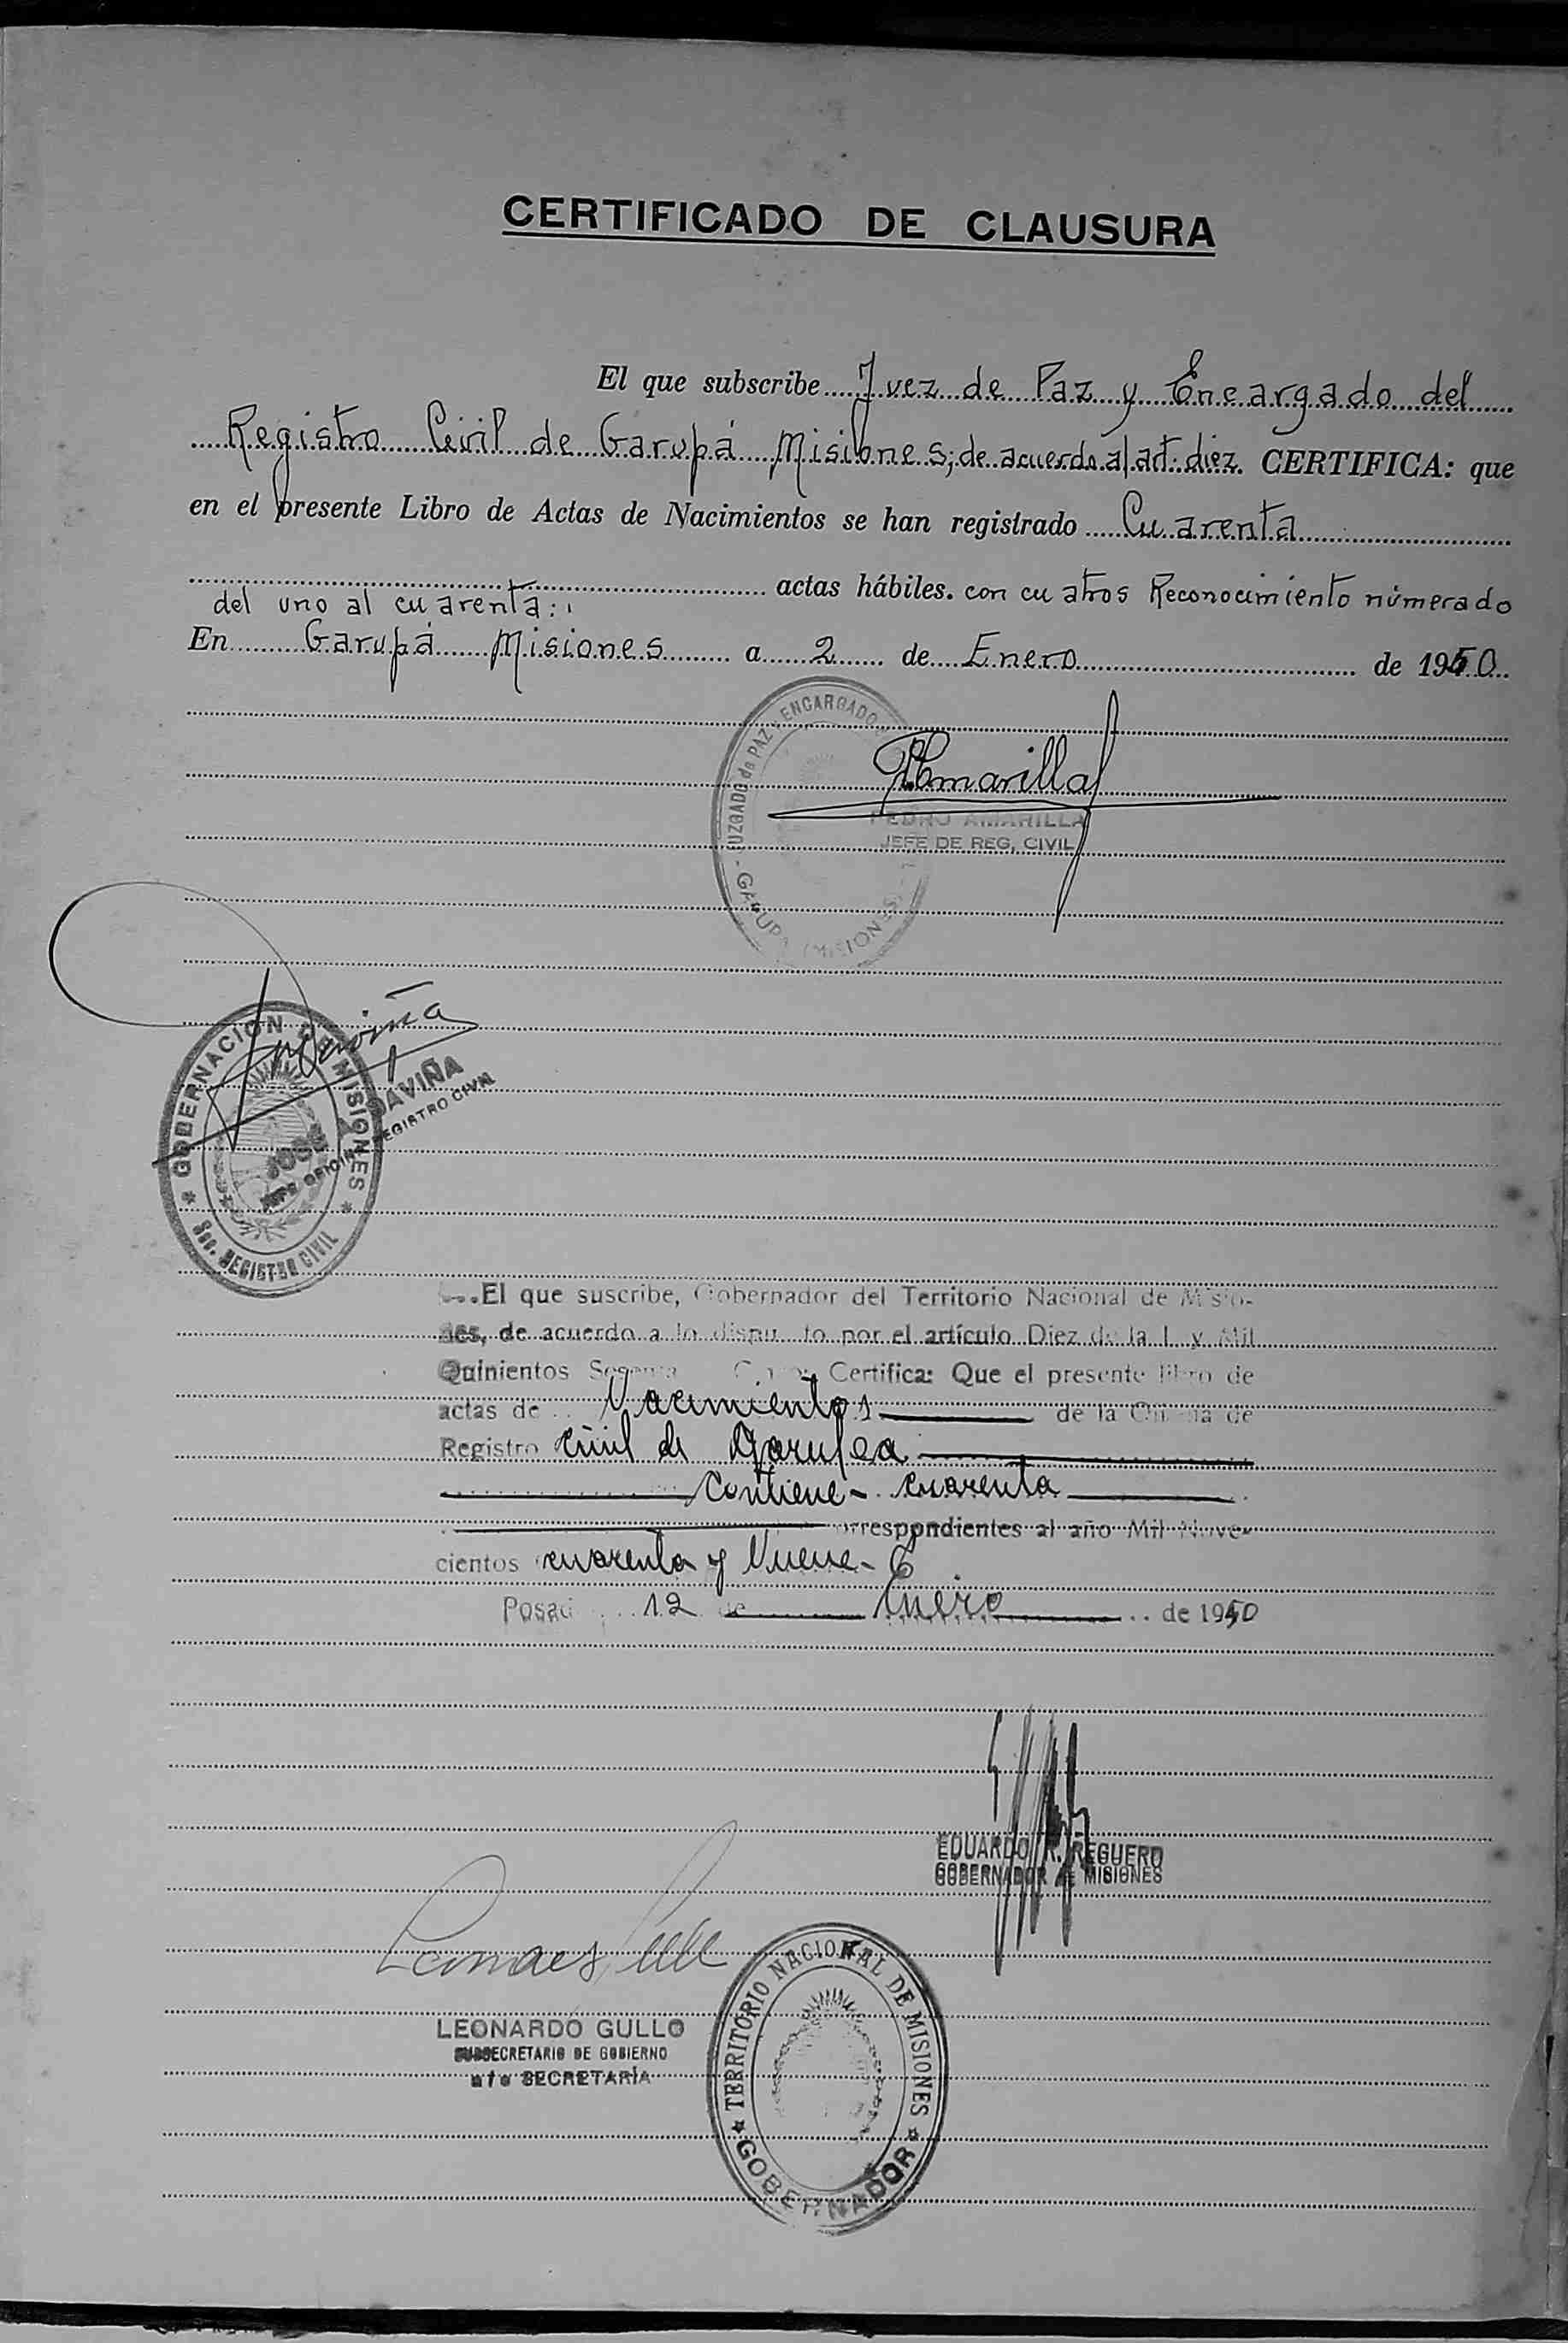 CERTIFICADO DE CLAUSURA
El que subscribe Juez de Paz y Encargado del
Registro Civil de Garupá Misiones, de acuerdo al art. diez. CERTIFICA: que
en el presente Libro de Actas de Nacimientos se han registrado Cuarenta
actas hábiles. con cuatros Reconocimiento númerado
del uno al cuarenta:
En Garupá Misiones a 2 de Enero de 1950.
JUZGADO de PAZ y ENCARGADO
GARUPA (MISIONES)
PAmarilla
PEDRO AMARILLA
JEFE DE REG, CIVIL
GOBERNACION DE MISIONES
Sec. REGISTRO CIVIL
JOSE A. DAVIÑA
JEFE OFICINA REGISTRO CIVIL
El que suscribe, Gobernador del Territorio Nacional de Misio-
nes, de acuerdo a lo dispuesto por el artículo Diez de la Ley Mil
Quinientos Certifica: Que el presente libro de
actas de Nacimientos de la Oficina de
Registro Civil de Garupa
Contiene - cuarenta
correspondientes al año Mil Nove-
cientos cuarenta y Nueve-
Posad 12 de Enero de 1950
EDUARDO R. REGUERO
GOBERNADOR DE MISIONES
LEONARDO GULLO
SUBSECRETARIO DE GOBIERNO
a/c SECRETARÍA
TERRITORIO NACIONAL DE MISIONES
GOBERNADOR